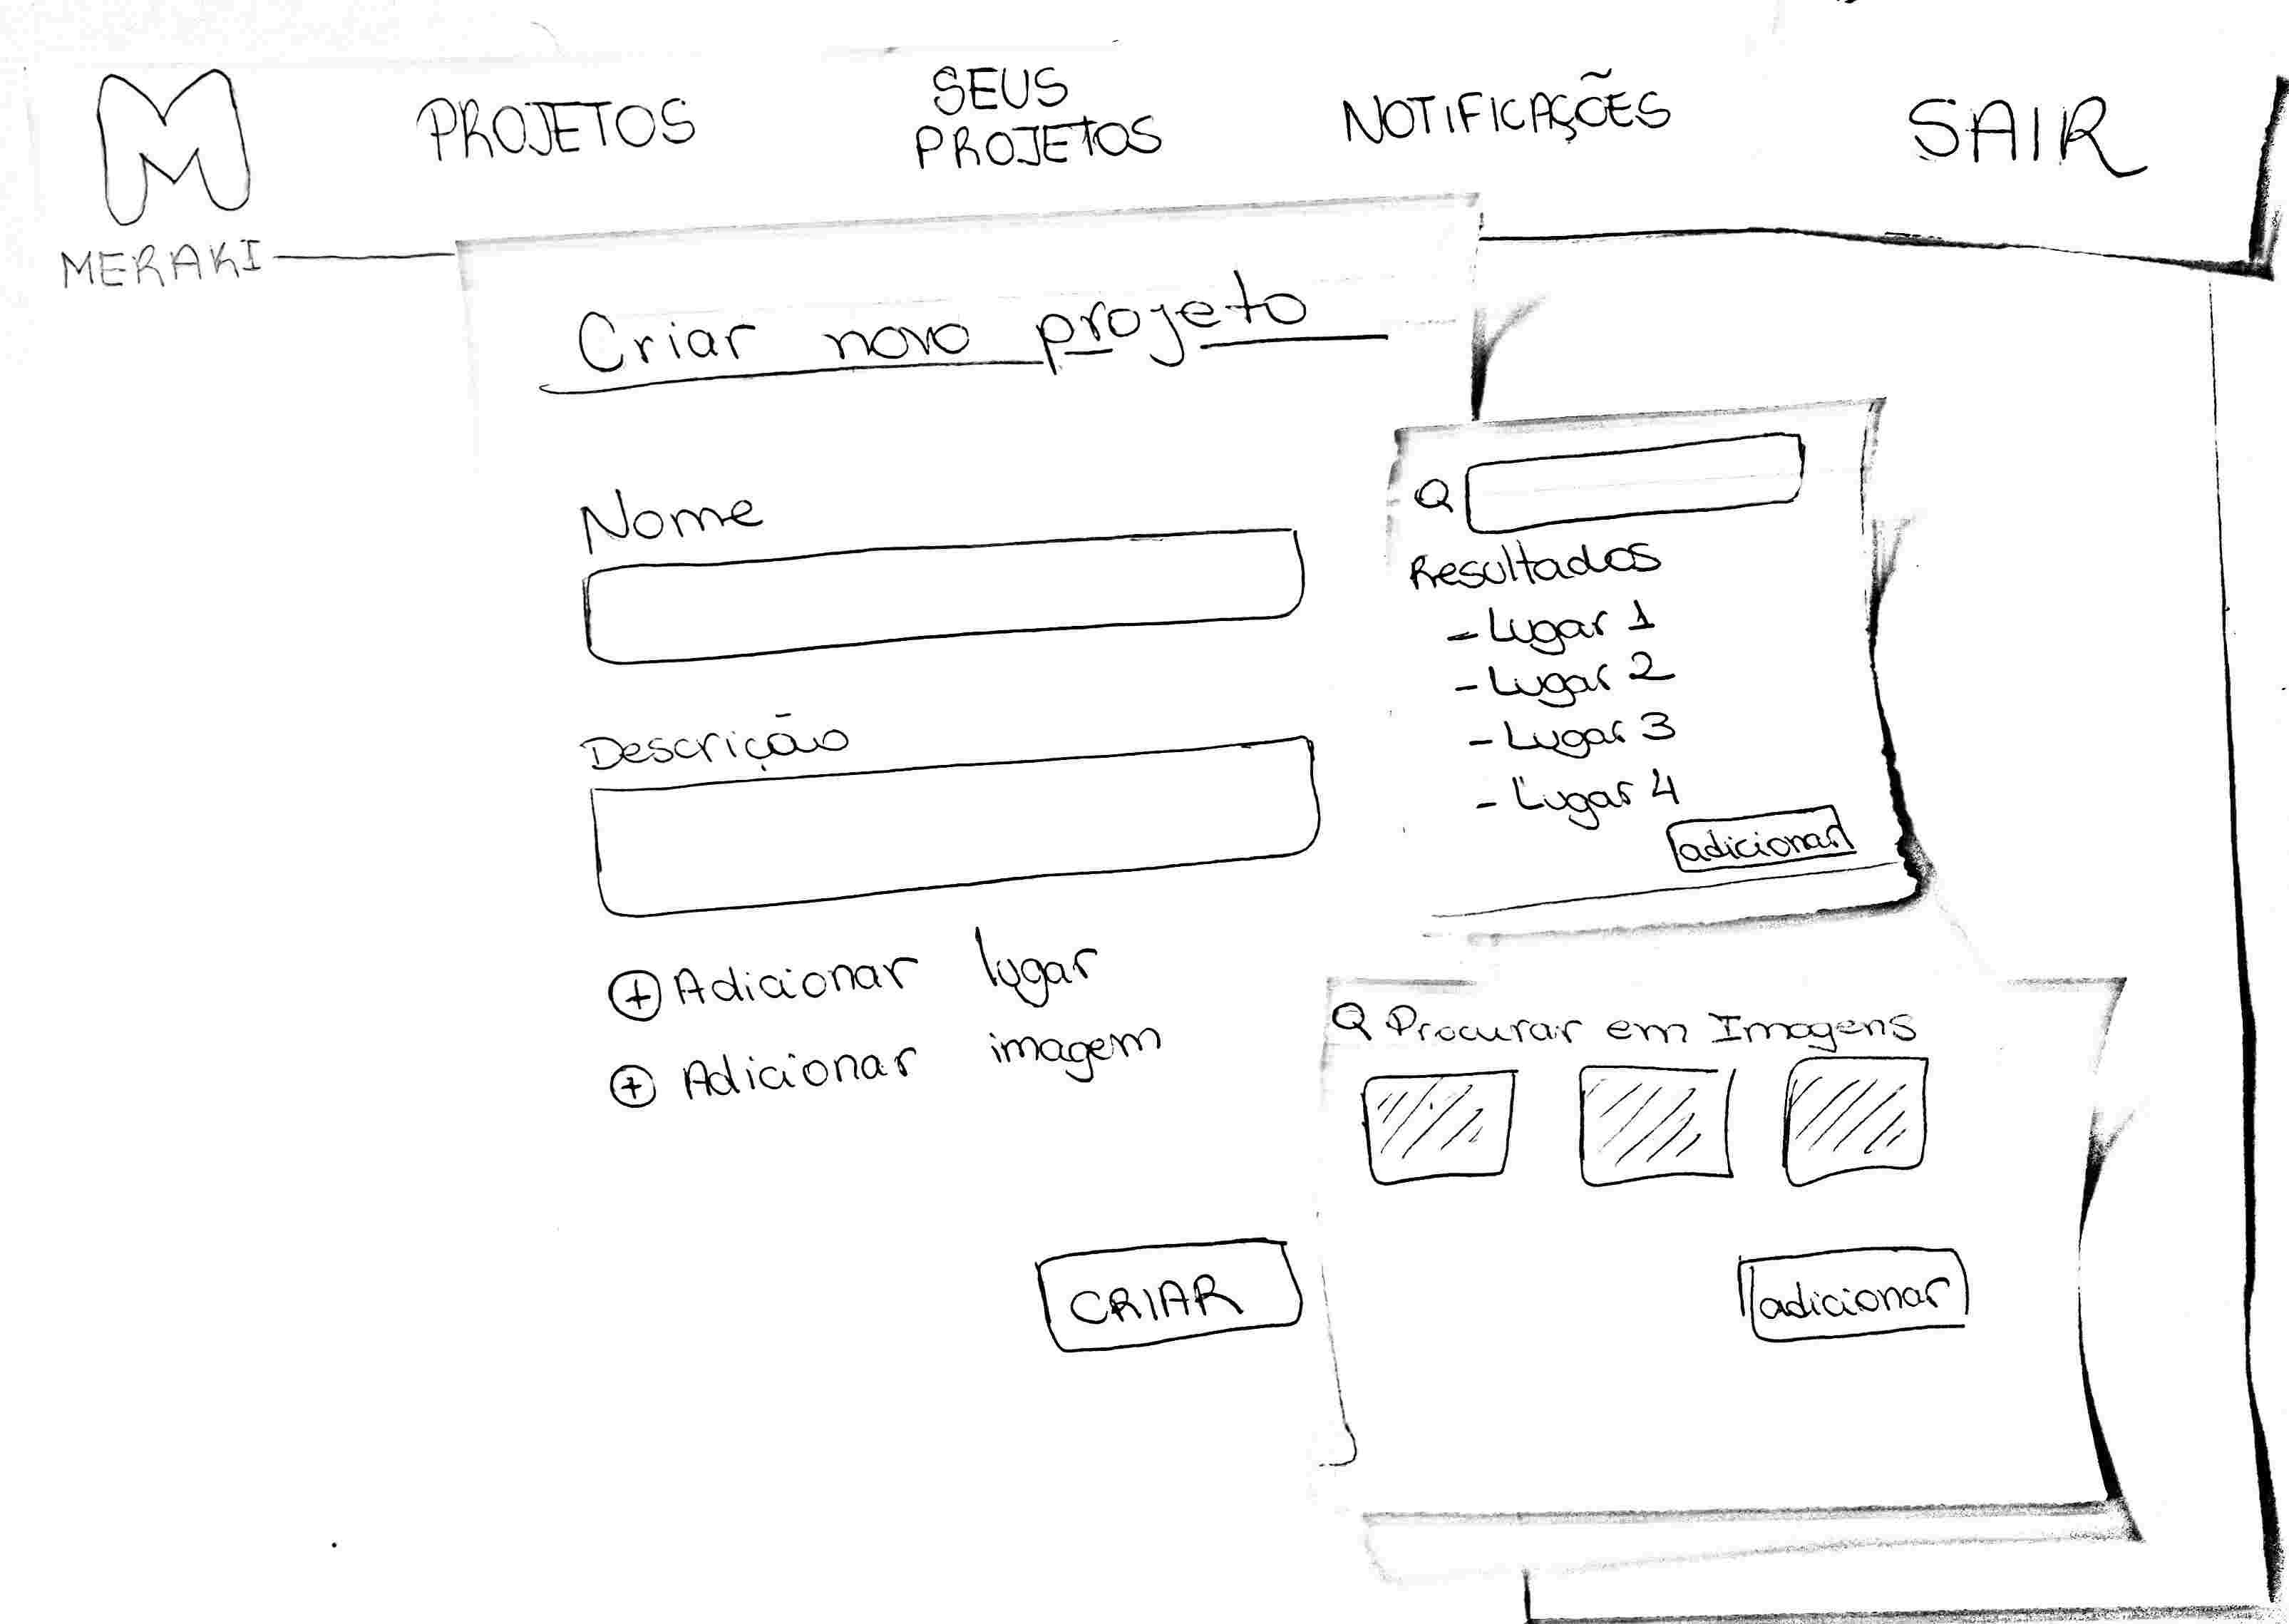 M
MERAKI
PROJETOS
SEUS
PROJETOS
NOTIFICAÇÕES
SAIR
Criar novo projeto
Nome
Descrição
+ Adicionar lugar
+ Adicionar imagem
CRIAR
Resultados
- Lugar 1
- Lugar 2
- Lugar 3
- Lugar 4
adicionar
Procurar em Imagens
adicionar